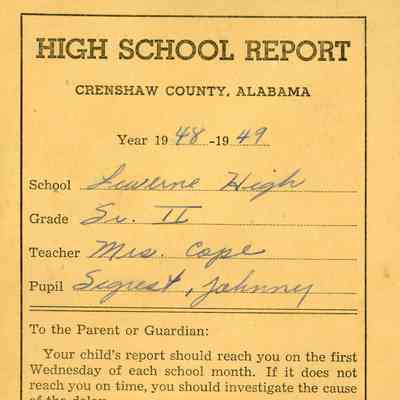 HIGH SCHOOL REPORT
CRENSHAW COUNTY, ALABAMA
Year 1948-1949
School Luverne High
Grade Sr. II
Teacher Mrs. Cope
Pupil Segrest, Johnny
To the Parent or Guardian:
Your child's report should reach you on the first
Wednesday of each school month. If it does not
reach you on time, you should investigate the cause
of the delay